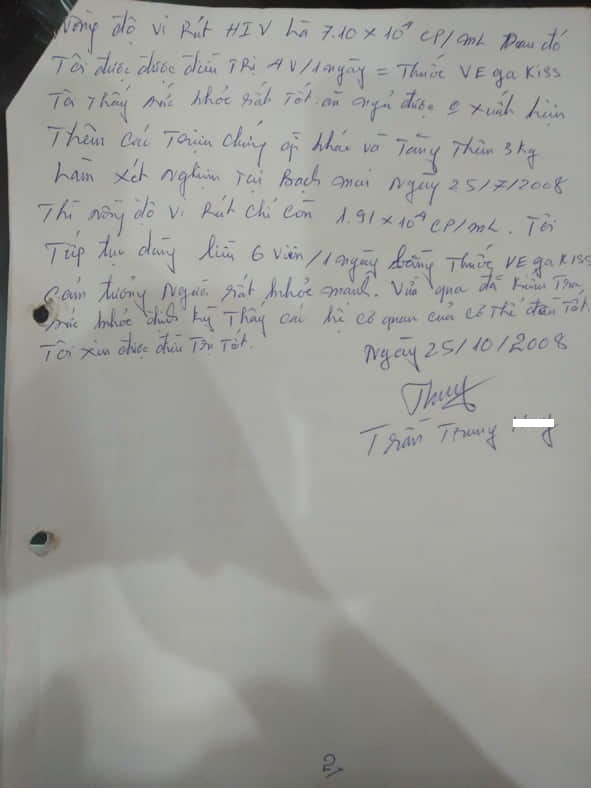 Nồng độ vi Rút HIV Là 7.10 x 10⁴ CP/mL sau đó
Tôi được được điều Trị 4V/1ngày = Thuốc VEgaKiss
Tôi Thấy sức khỏe rất Tốt ăn ngủ được o xuất hiện
Thêm các Triệu chứng gì khác và Tăng Thêm 3kg
Làm xét nghiệm Tại Bạch mai Ngày 25/7/2008
Thì nồng độ vi Rút chỉ còn 1.91 x 10⁴ CP/mL. Tôi
Tiếp tục dùng liều 6 viên/1ngày bằng Thuốc VEgaKISS
Cảm tưởng Người rất khỏe mạnh. Vừa qua đã Kiểm Tra
sức khỏe định kỳ Thấy các hệ cơ quan của cơ Thể đều Tốt
Tôi xin được điều Trị Tốt.
Ngày 25/10/2008
Trần Trung
2